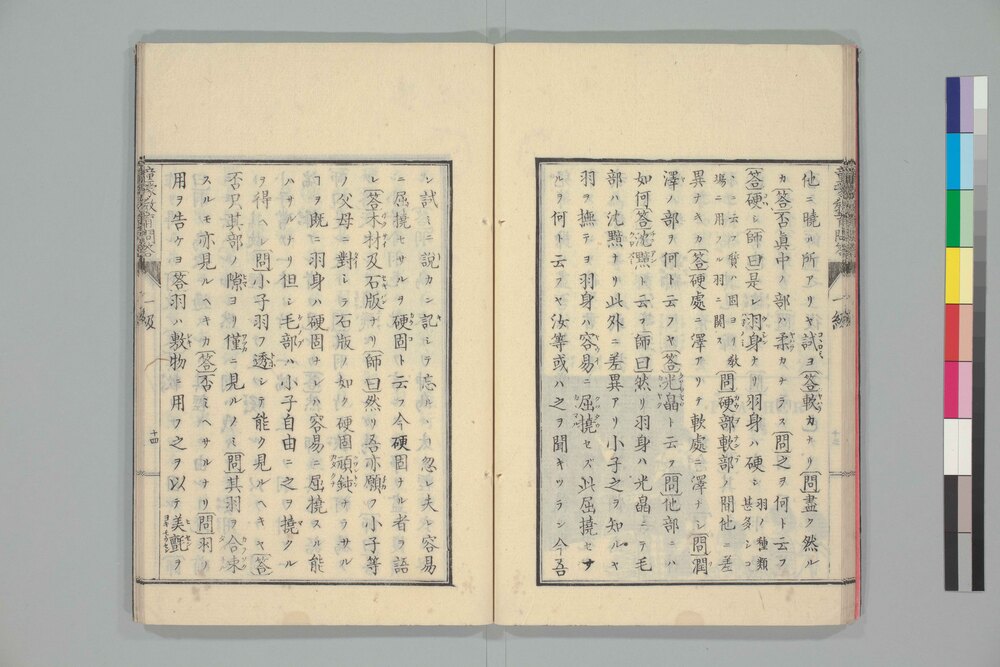 他ニ曉ル所アリヤ試ヨ答軟カナリ問盡ク然ル
カ答否眞中ノ部ハ柔カナラス問之ヲ何ト云フ
答硬シ師曰是レ羽身ナリ羽身ハ硬シ羽ノ種類甚多シコ
場ニ用フル羽ニ関ス問硬部軟部ノ間他ニ差
異ナキカ答硬處ニ澤アリテ軟處ニ澤ナシ問潤
澤ノ部ヲ何ト云フヤ答光晶ト云フ問他部ハ
如何答沈黯ト云フ師曰然リ羽身ハ光晶ニテ毛
部ハ沈黯ナリ此外ニ差異アリ小子之ヲ知ルヤ
羽ヲ撫テヨ羽身ハ容易ニ屈撓セズ此屈撓セサ
ルヲ何ト云フヤ汝等或ハ之ヲ聞キツラン今吾
試ミニ説カン記ミテ忘ルハ勿忽レ夫レ容易
ニ屈撓セサルヲ硬固ト云フ今硬固ナル者ヲ語
レ答木材及石版ナリ師曰然リ吾亦願フ小子等
ノ父母ニ對シテ石版ノ如ク硬固頑鈍ナラサル
ヲ既ニ羽身ハ硬固ナレハ容易ニ屈撓スル能
ハサルナリ但シ毛部ハ小子自由ニ之ヲ撓クル
ヲ得ヘシ問小子羽ヲ透シテ能ク見ルヘキヤ答
否只其部ノ隙ヨリ僅ニ見ルノミ問其羽ヲ合束
スルモ亦見ルヘキカ答否ミヘサルナリ問羽ノ
用ヲ告ケヨ答羽ハ敷物ニ用フ之ヲ以テ美氈ヲ
一級
十四